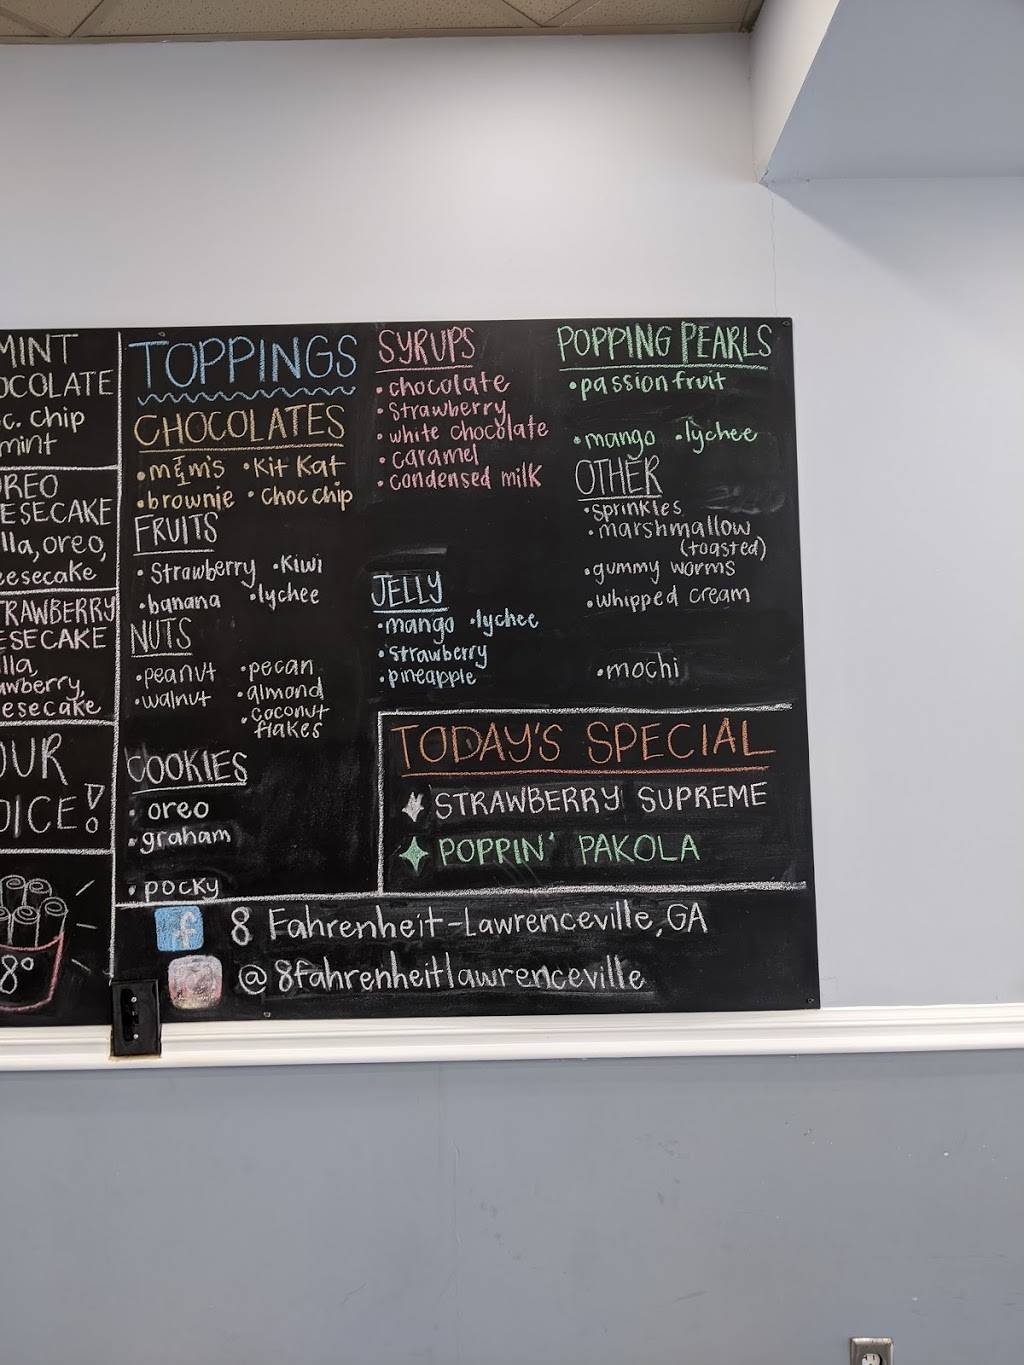 MINT
OCOLATE
c. chip
mint
OREO
ESECAKE
lla, oreo,
eesecake
TRAWBERRY
ESECAKE
illa,
awberry,
esecake
OUR
OICE!
8°
TOPPINGS
CHOCOLATES
• m&m's • Kit Kat
• brownie • choc chip
FRUITS
• Strawberry • Kiwi
• banana • lychee
NUTS
• peanut • pecan
• walnut • almond
• coconut
flakes
COOKIES
• oreo
• graham
• pocky
SYRUPS
• chocolate
• strawberry
• white chocolate
• caramel
• condensed milk
JELLY
• mango • lychee
• strawberry
• pineapple
POPPING PEARLS
• passion fruit
• mango • lychee
OTHER
• sprinkles
• marshmallow
(toasted)
• gummy worms
• whipped cream
• mochi
TODAY'S SPECIAL
STRAWBERRY SUPREME
POPPIN' PAKOLA
f 8 Fahrenheit-Lawrenceville, GA
@8fahrenheitlawrenceville